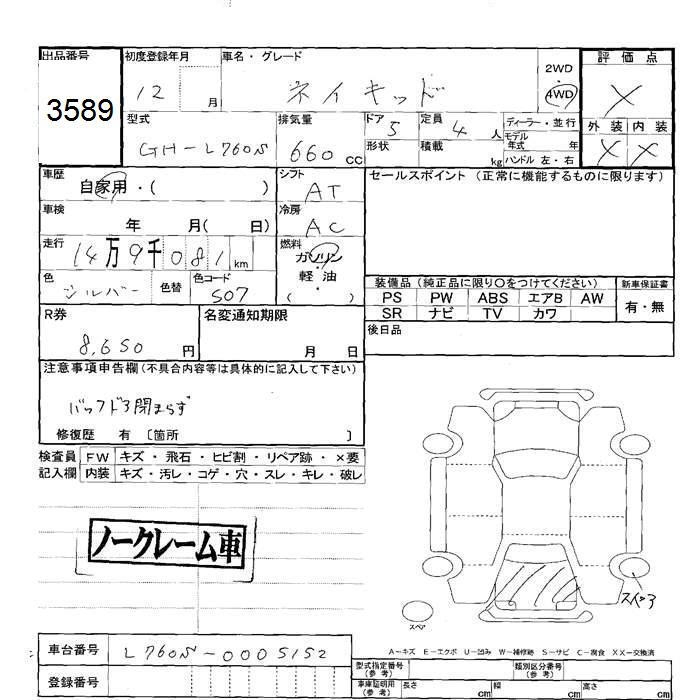 出品番号 初度登録年月 車名・グレード 評価点
3589 12 月 ネイキッド 2WD 4WD X
型式 排気量 ドア 5 定員 4 人 ディーラー・並行 外装 内装
GH-L760S 660 CC 形状 積載 kg モデル年式 年 X X
ハンドル 左・右
車歴 自家用・( ) シフト AT セールスポイント (正常に機能するものに限ります)
車検 年 月( 日) 冷房 AC
走行 14万9千081km 燃料 ガソリン・軽油 ( )
色 シルバー 色替 色コード S07
装備品 (純正品に限り○をつけてください) 新車保証書
PS PW ABS エアB AW 有・無
SR ナビ TV カワ
R券 8,650 円 名変通知期限 月 日 後日品
注意事項申告欄 (不具合内容等は具体的に記入して下さい)
バックドア閉まらず
修復歴 有 〔箇所 〕
検査員 FW キズ・飛石・ヒビ割・リペア跡・×要
記入欄 内装 キズ・汚レ・コゲ・穴・スレ・キレ・破レ
ノークレーム車
スペア
A-キズ E-エクボ U-凹み W-補修跡 S-サビ C-腐食 XX-交換済
車台番号 L760S-0005152 型式指定番号 (参考) 類別区分番号 (参考)
登録番号 車庫証明用 (参考) 長さ cm 幅 cm 高さ cm